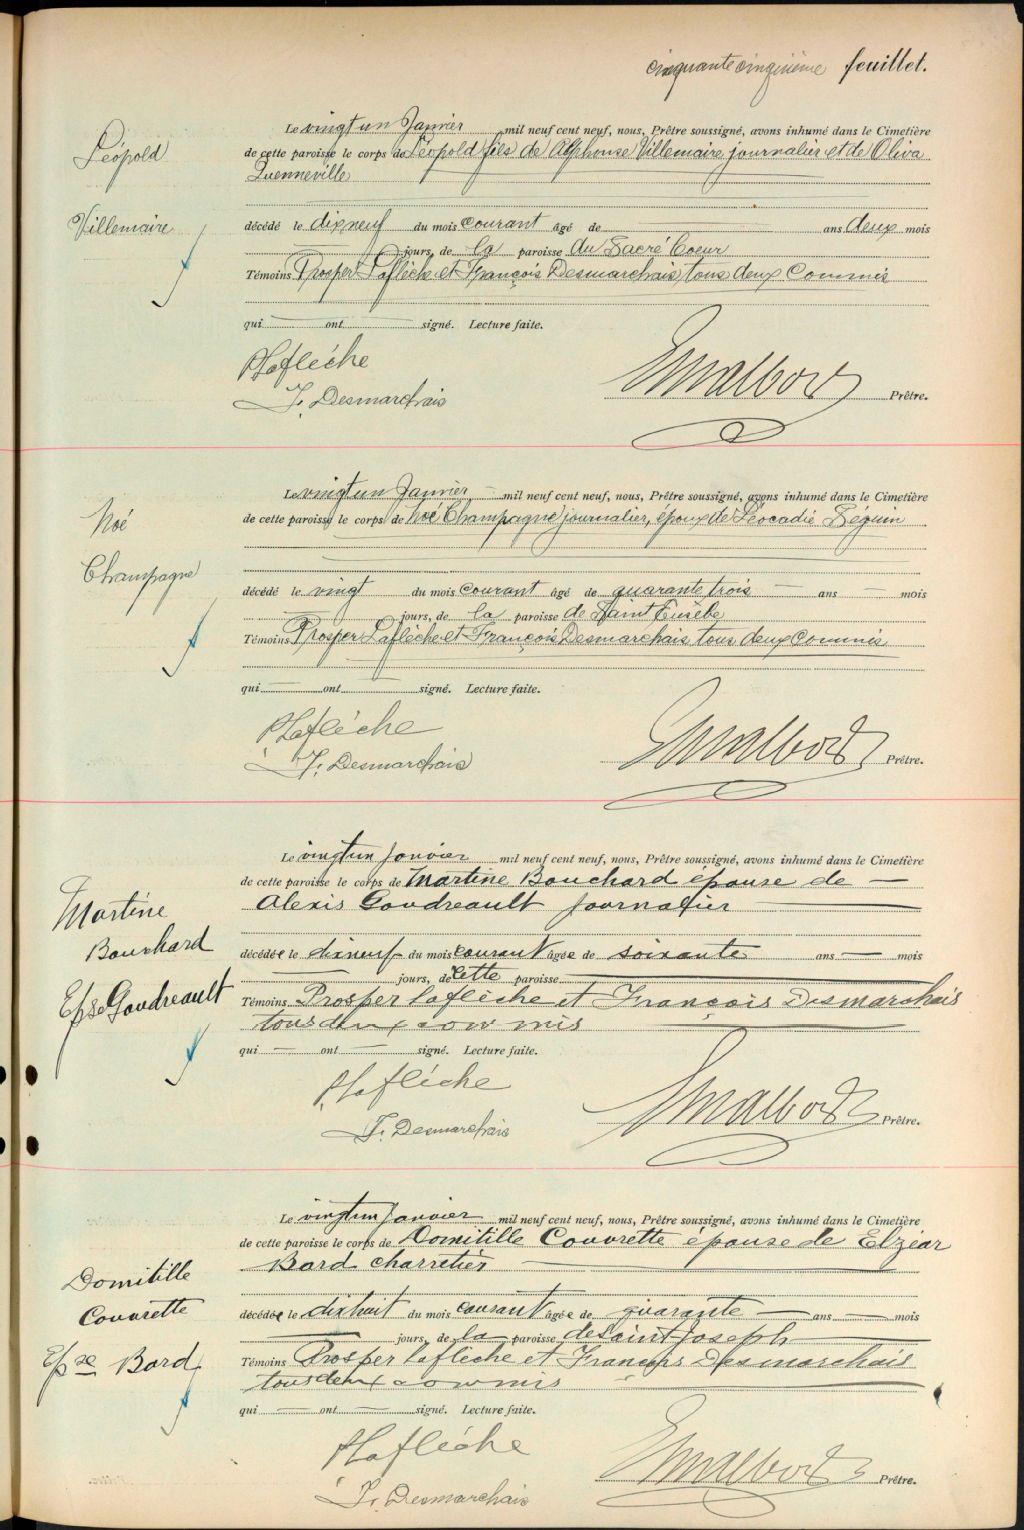 cinquante cinquième feuillet.
Léopold
Villemaire
Le vingt un Janvier mil neuf cent neuf, nous, Prêtre soussigné, avons inhumé dans le Cimetière
de cette paroisse le corps de Léopold fils de Alphonse Villemaire journalier et de Oliva
Quenneville
décédé le dix neuf du mois courant âgé de ans deux mois
jours, de la paroisse du Sacré Coeur
Témoins Prosper Laflèche et François Desmarchais tous deux Commis
qui ont signé. Lecture faite.
PLaflèche
F. Desmarchais
Prêtre.
Noé
Champagne
Le vingt un Janvier mil neuf cent neuf, nous, Prêtre soussigné, avons inhumé dans le Cimetière
de cette paroisse le corps de Noé Champagne journalier, époux de Léocadie Séguin
décédé le vingt du mois courant âgé de quarante trois ans mois
jours, de la paroisse de Saint Eusèbe
Témoins Prosper Laflèche et François Desmarchais tous deux Commis
qui ont signé. Lecture faite.
PLaflèche
F. Desmarchais
Prêtre.
Martine
Bouchard
Epse Goudreault
Le vingt un janvier mil neuf cent neuf, nous, Prêtre soussigné, avons inhumé dans le Cimetière
de cette paroisse le corps de Martine Bouchard épouse de
Alexis Goudreault journalier
décédée le dix neuf du mois courant âgée de soixante ans mois
jours, de cette paroisse
Témoins Prosper Laflèche et François Desmarchais
tous deux commis
qui ont signé. Lecture faite.
PLaflèche
F. Desmarchais
Prêtre.
Domitille
Couvrette
Epse Bard
Le vingt un janvier mil neuf cent neuf, nous, Prêtre soussigné, avons inhumé dans le Cimetière
de cette paroisse le corps de Domitille Couvrette épouse de Elzéar
Bard charretier
décédée le dix huit du mois courant âgée de quarante ans mois
jours, de la paroisse de Saint Joseph
Témoins Prosper Laflèche et François Desmarchais
tous deux commis
qui ont signé. Lecture faite.
PLaflèche
F. Desmarchais
Prêtre.